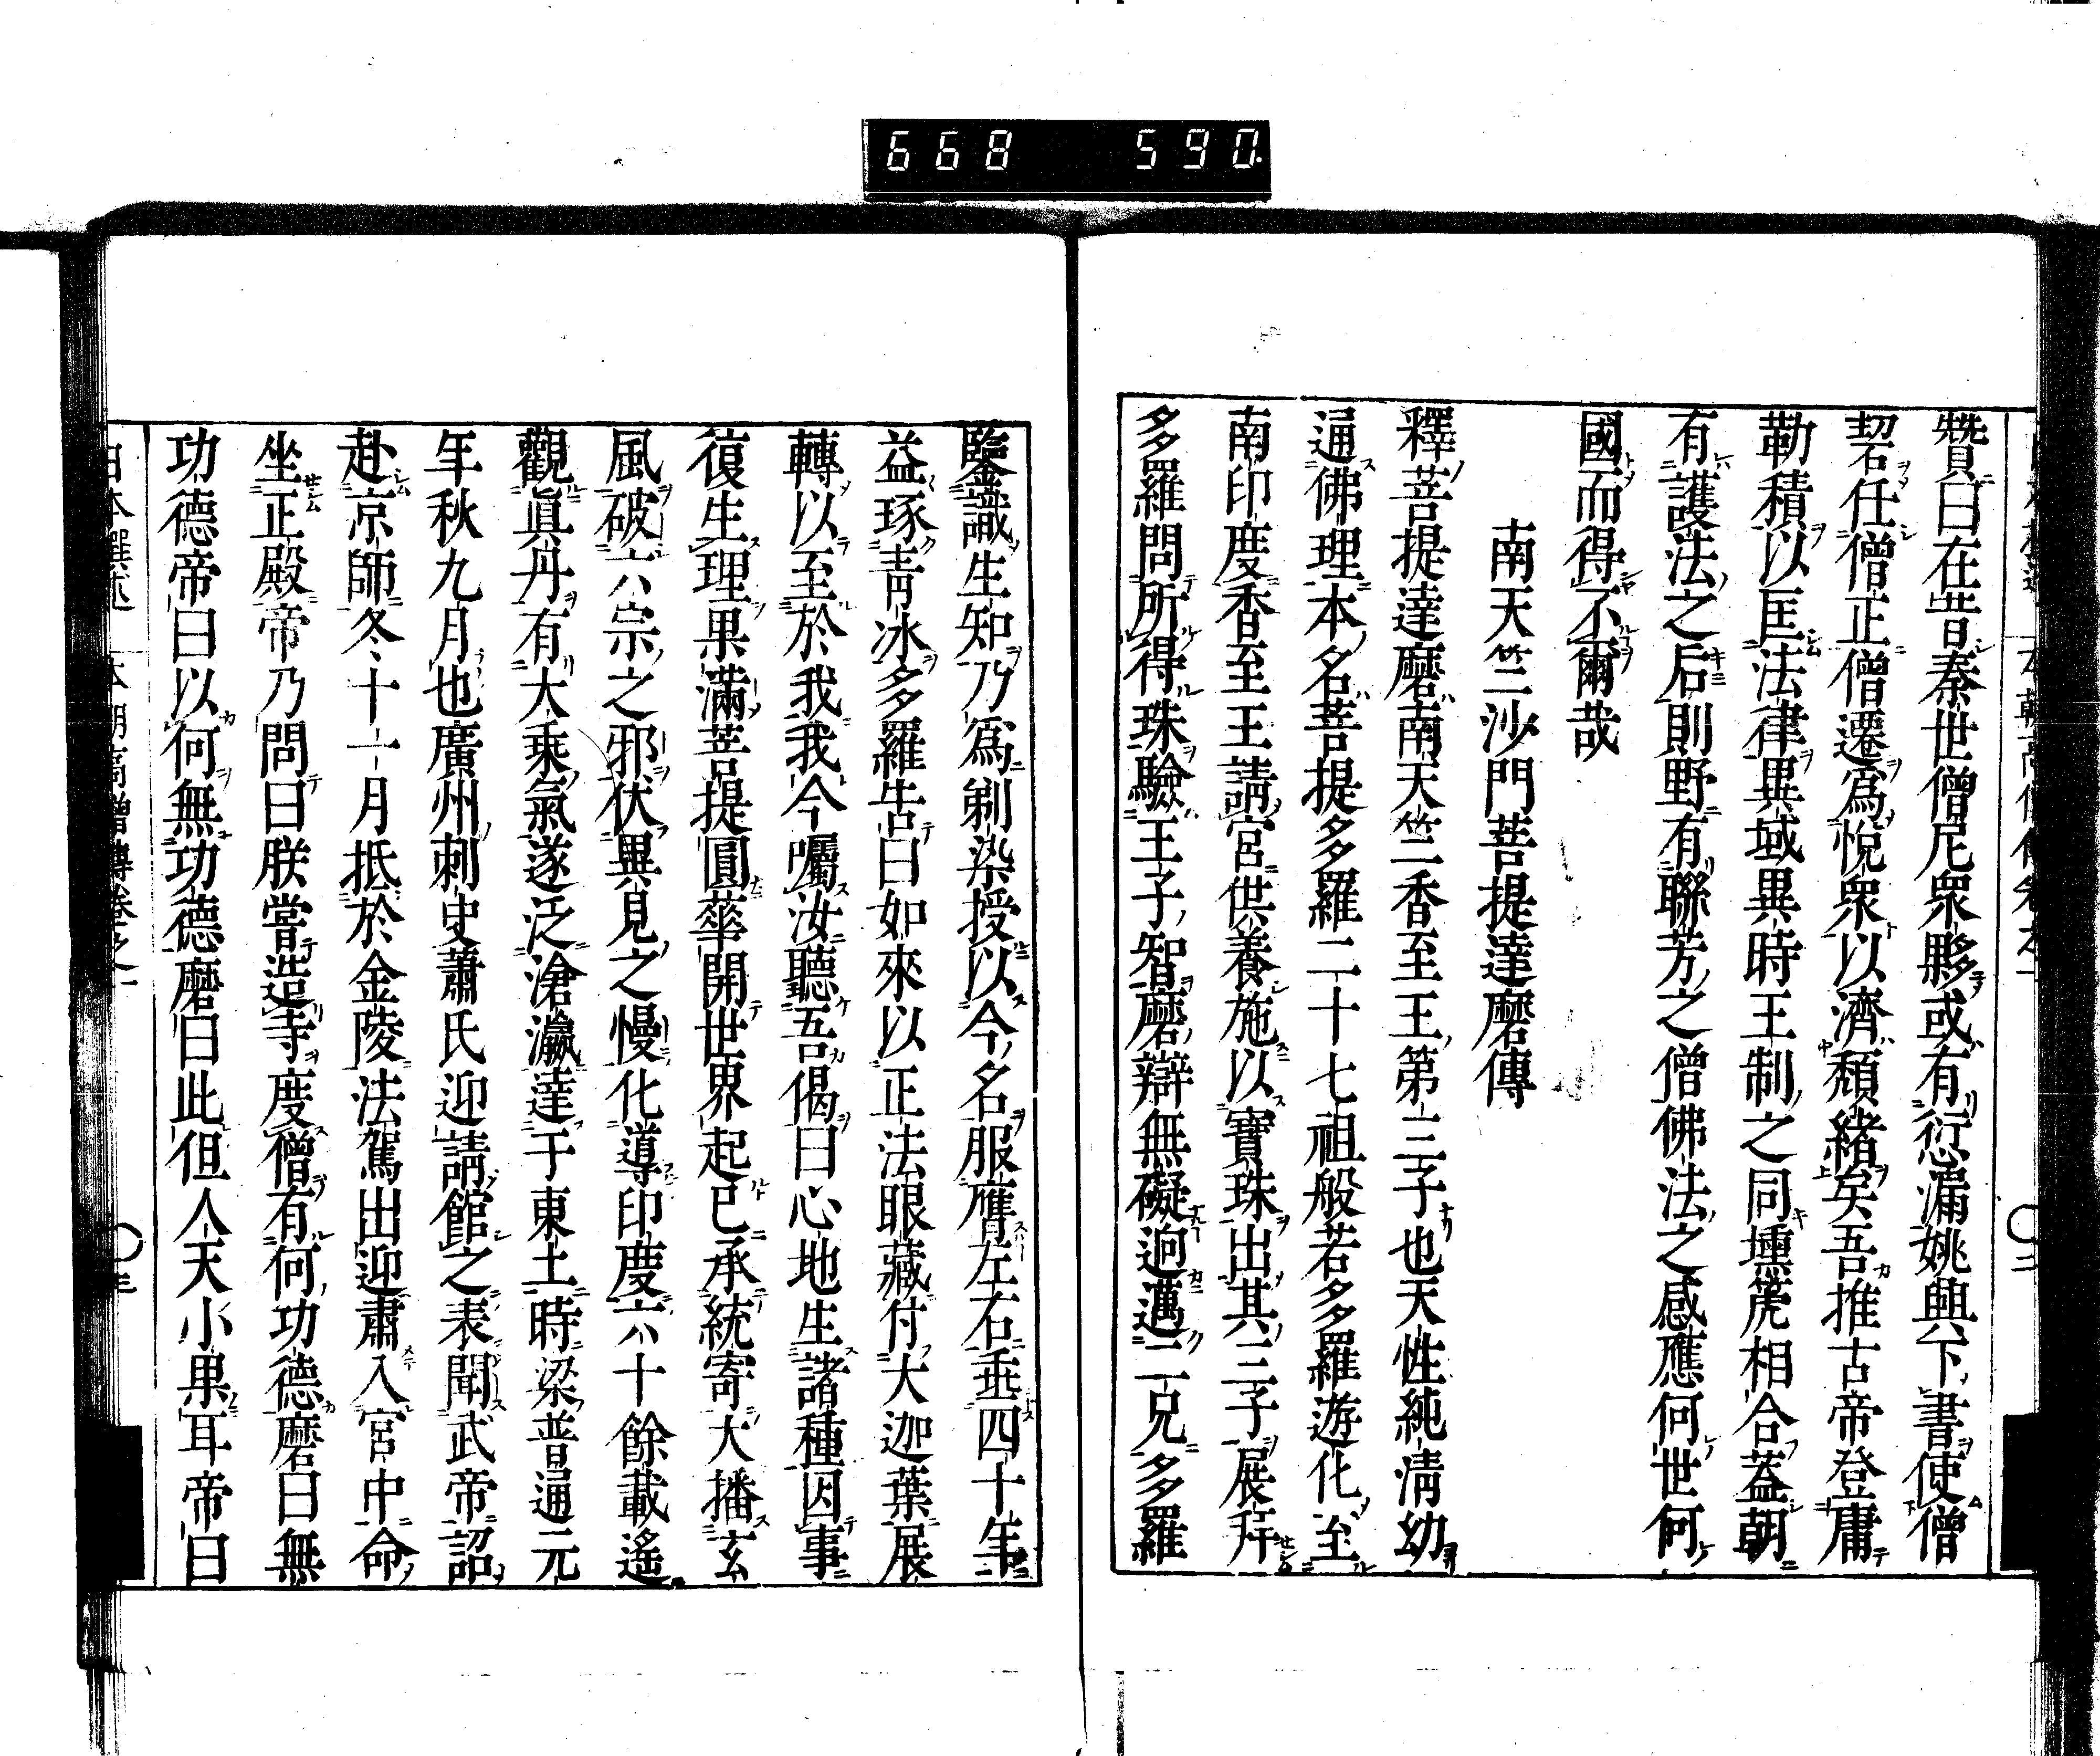 668 590
贊曰在昔秦世僧尼衆夥或有愆漏姚興下書使僧
䂮任僧正僧遷爲悅衆以濟頹緒矣吾推古帝登庸
勒積以匡法律異域異時王制之同壎箎相合蓋朝
有護法之后則野有聯芳之僧佛法之感應何世何
國而得不爾哉
南天竺沙門菩提達磨傳
釋菩提達磨南天竺香至王第三子也天性純淸幼
通佛理本名菩提多羅二十七祖般若多羅遊化至
南印度香至王請宮供養施以寶珠出其三子展拜
多羅問所得珠驗王子智磨辯無礙迥邁二兄多羅
鑒識生知乃爲剃染授以今名服膺左右垂四十年
益琢靑冰多羅告曰如來以正法眼藏付大迦葉展
轉以至於我我今囑汝聽吾偈曰心地生諸種因事
復生理果滿菩提圓華開世界起已承統寄大播玄
風破六宗之邪伏異見之慢化導印度六十餘載遙
觀眞丹有大乘氣遂泛滄瀛達于東土時梁普通元
年秋九月也廣州刺史蕭氏迎請館之表聞武帝詔
赴京師冬十一月抵於金陵法駕出迎肅入宮中命
坐正殿帝乃問曰朕嘗造寺度僧有何功德磨曰無
功德帝曰以何無功德磨曰此但人天小果耳帝曰
日本撰述 本朝高僧傳卷之一 三